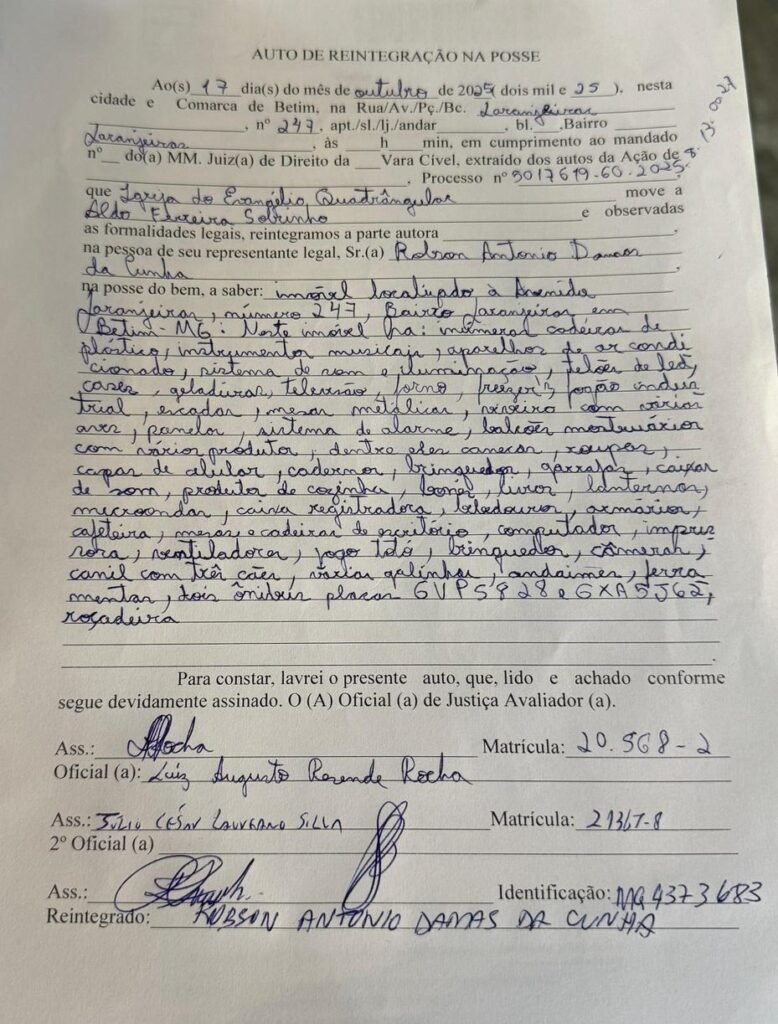 AUTO DE REINTEGRAÇÃO NA POSSE
Ao(s) 17 dia(s) do mês de outubro de 2025 (dois mil e 25 ), nesta
cidade e Comarca de Betim, na Rua/Av./Pç./Bc. Laranjeiras
, nº 247, apt./sl./lj./andar , bl. .Bairro
Laranjeiras , às h min, em cumprimento ao mandado
nº do(a) MM. Juiz(a) de Direito da Vara Cível, extraído dos autos da Ação de
, Processo nº 5017619-60.2025.8.13.0027
que Igreja do Evangélio Quadrângular move a
Aldo Ferreira Sobrinho e observadas
as formalidades legais, reintegramos a parte autora ,
na pessoa de seu representante legal, Sr.(a) Robson Antonio Damas
da Cunha ,
na posse do bem, a saber: imóvel localizado à Avenida
Laranjeiras, número 247, Bairro Laranjeiras em
Betim-MG: Neste imóvel há: inúmeras cadeiras de
plástico, instrumentos musicais, aparelhos de ar condi
cionado, sistema de som e iluminação, telões de led,
cases, geladeiras, televisão, forno, freezer's, fogão indus
trial, escadas, mesas metálicas, viveiro com várias
aves, panelas, sistema de alarme, balcões mostruários
com vários produtos, dentre eles canecas, roupas,
capas de celular, cadernos, brinquedos, garrafas, caixas
de som, produtos de cozinha, bonés, livros, lanternas,
microondas, caixa registradora, bebedouros, armários,
cafeteira, mesas e cadeiras de escritório, computador, impres
sora, ventiladores, jogo totó, brinquedos, câmeras,
canil com três cães, várias galinhas, andaimes, ferra
mentas, dois ônibus placas GVP5828 e GXA5J62,
roçadeira
.
Para constar, lavrei o presente auto, que, lido e achado conforme
segue devidamente assinado. O (A) Oficial (a) de Justiça Avaliador (a).
Ass.: Rocha Matrícula: 20.568-2
Oficial (a): Luiz Augusto Resende Rocha
Ass.: JÚLIO CÉSAR LAUREANO SILVA Matrícula: 21367-8
2º Oficial (a)
Ass.: Identificação: MG4373683
Reintegrado: ROBSON ANTONIO DAMAS DA CUNHA